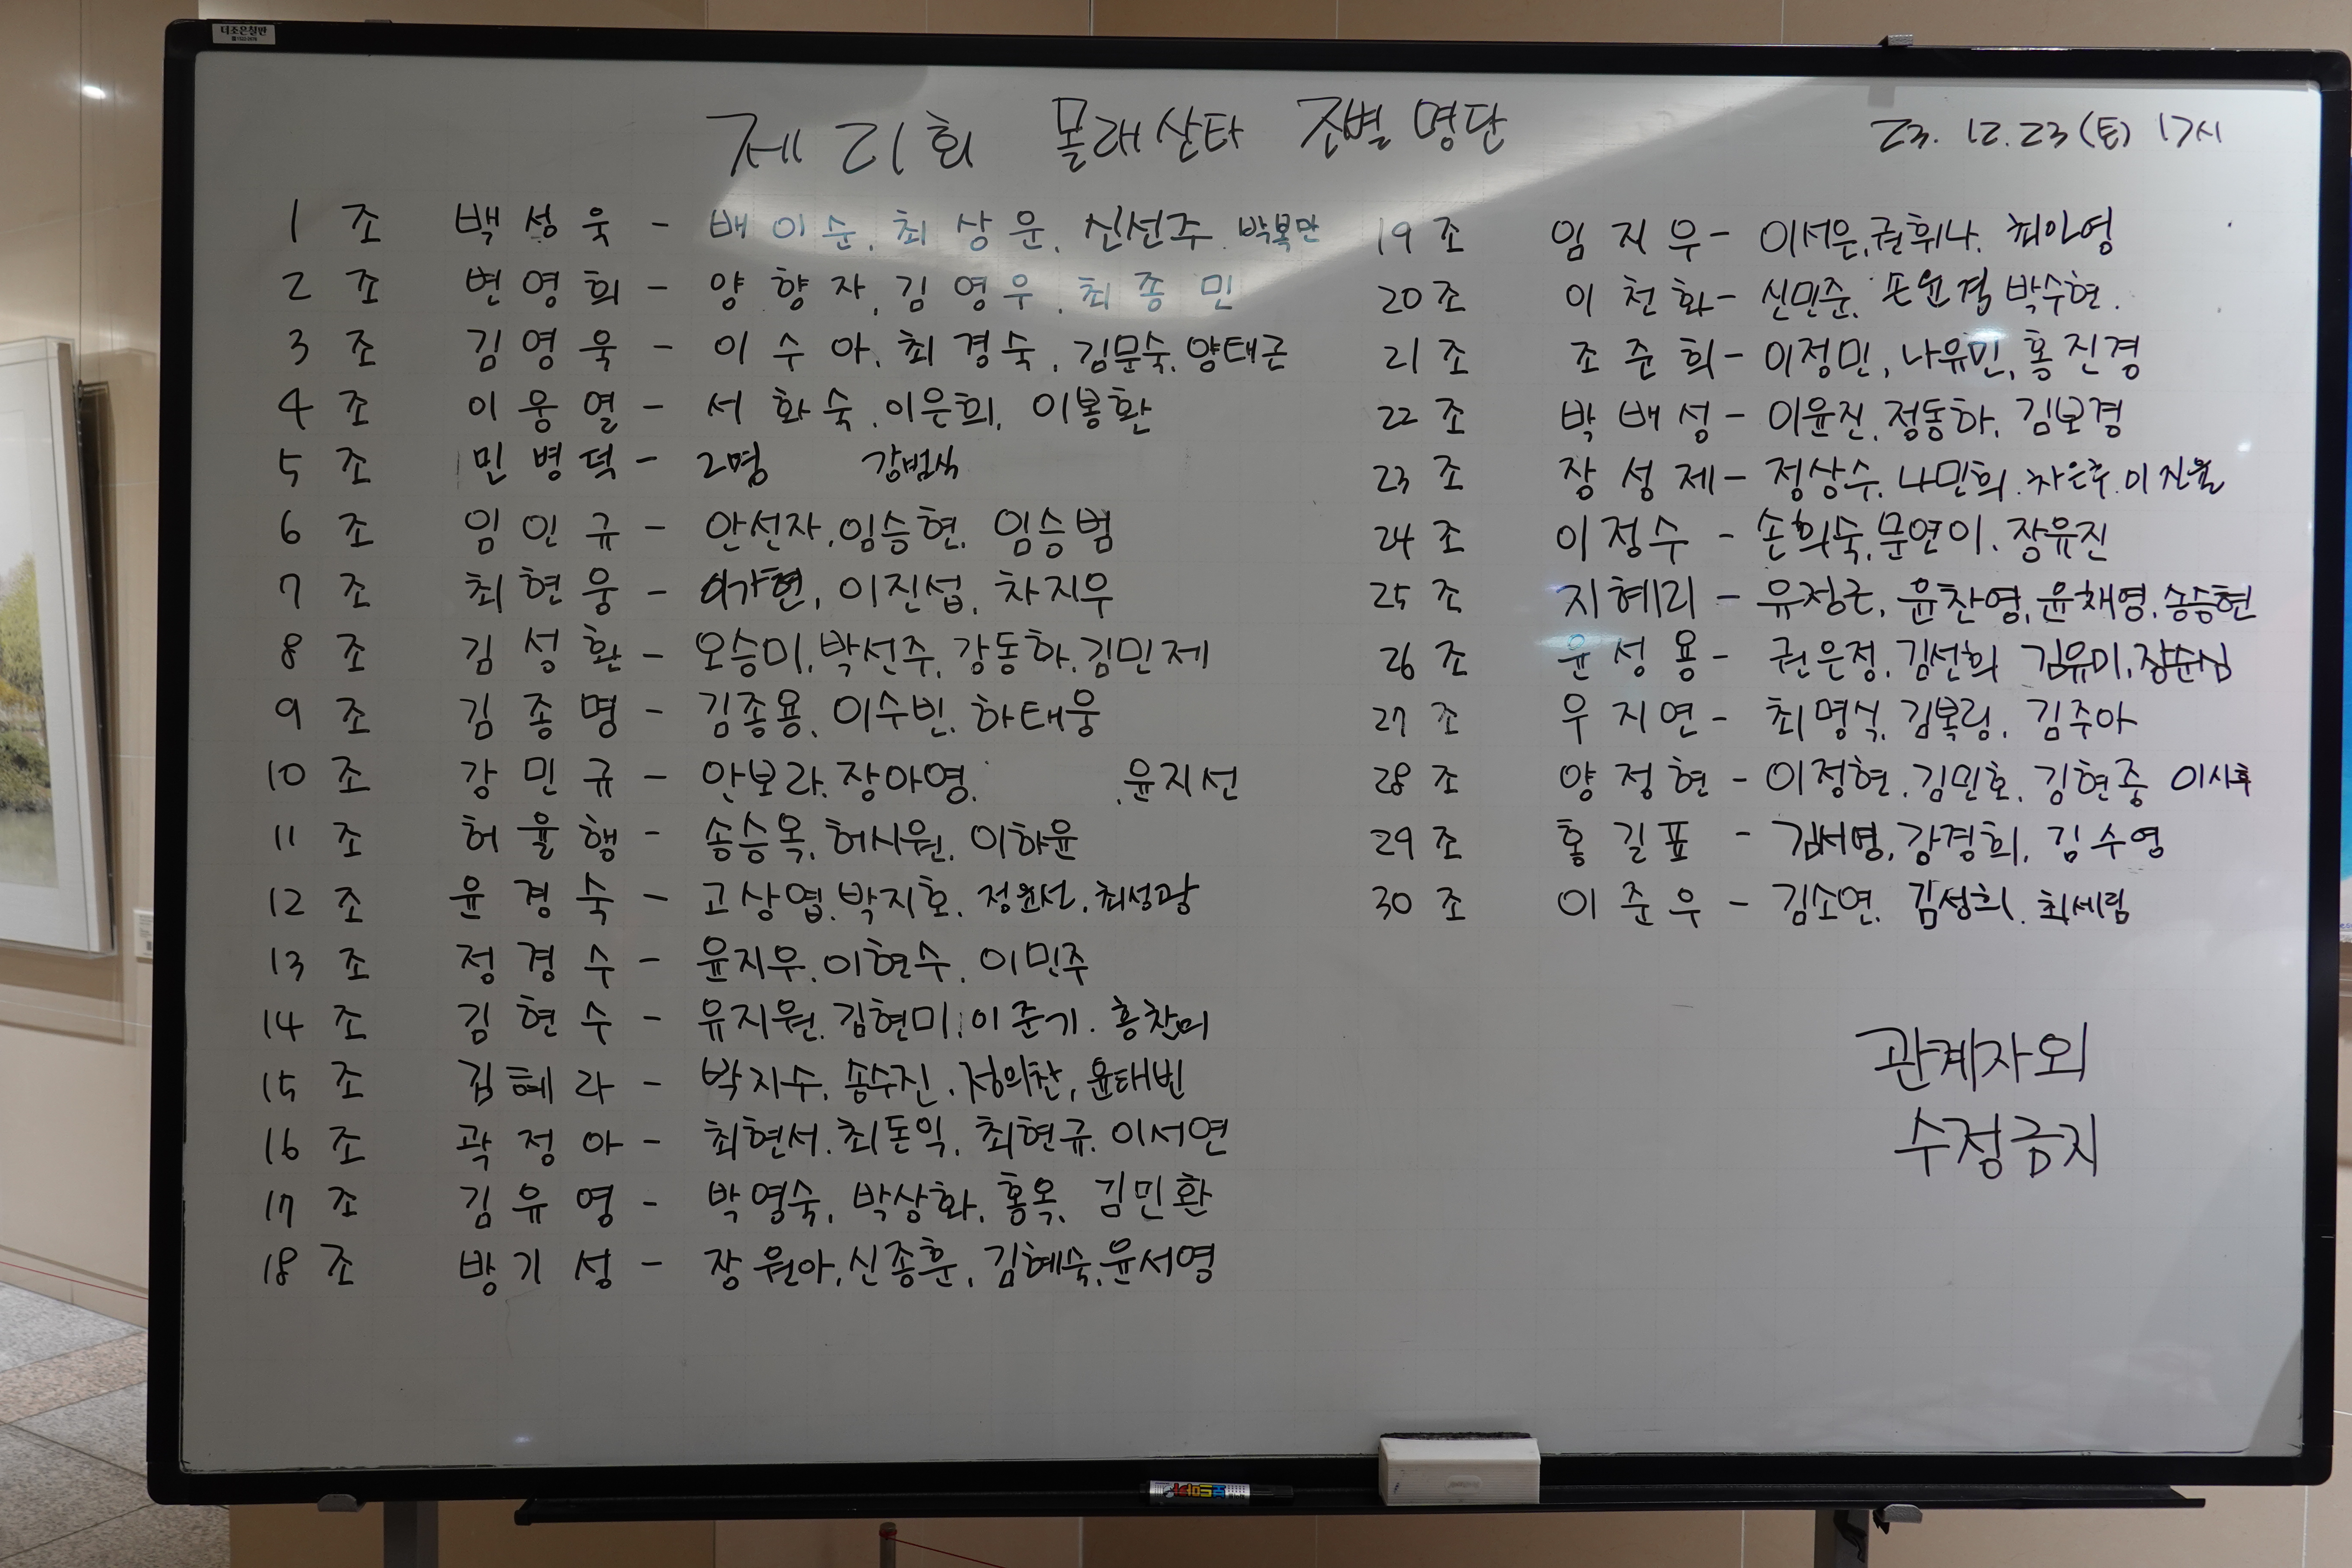 더조은칠판
제21회 몰래산타 조별 명단
23. 12. 23 (토) 17시
1 조 백성욱 - 배이순, 최상운, 신선주, 박복만
2 조 변영희 - 양향자, 김영우, 최종민
3 조 김영욱 - 이수아, 최경숙, 김문숙, 양태근
4 조 이웅열 - 서화숙, 이은희, 이봉환
5 조 민병덕 - 2명 강범식
6 조 임인규 - 안선자, 임승현, 임승범
7 조 최현웅 - 이가현, 이진섭, 차지우
8 조 김성환 - 오승미, 박선주, 강동하, 김민제
9 조 김종명 - 김종용, 이수빈, 하태웅
10 조 강민규 - 안보라, 장아영, 윤지선
11 조 허율행 - 송승옥, 허시원, 이하윤
12 조 윤경숙 - 고상엽, 박지호, 정원선, 최성광
13 조 정경수 - 윤지우, 이현수, 이민주
14 조 김현수 - 유지원, 김현미, 이준기, 홍찬미
15 조 김혜라 - 박지수, 송수진, 정의찬, 윤태빈
16 조 곽정아 - 최현서, 최돈익, 최현규, 이서연
17 조 김유영 - 박영숙, 박상화, 홍옥, 김민환
18 조 방기성 - 장원아, 신종훈, 김혜숙, 윤서영
19 조 임지우 - 이서은, 권휘나, 최아영
20 조 이천화 - 신민준, 손윤경 박수현.
21 조 조준희 - 이정민, 나유민, 홍진경
22 조 박배성 - 이윤진, 정동하, 김보경
23 조 장성제 - 정상수, 나민희, 차은후, 이진율
24 조 이정수 - 손희숙, 문연이, 장유진
25 조 지혜리 - 유정근, 윤찬영, 윤채영, 송승현
26 조 윤성용 - 권은정, 김선희 김유미, 장순심
27 조 우지연 - 최명식, 김복림, 김주아
28 조 양정현 - 이정현, 김민호, 김현중 이시후
29 조 홍길표 - 김서영, 강경희, 김수영
30 조 이준우 - 김소연, 김성희, 최세림
관계자외
수정금지